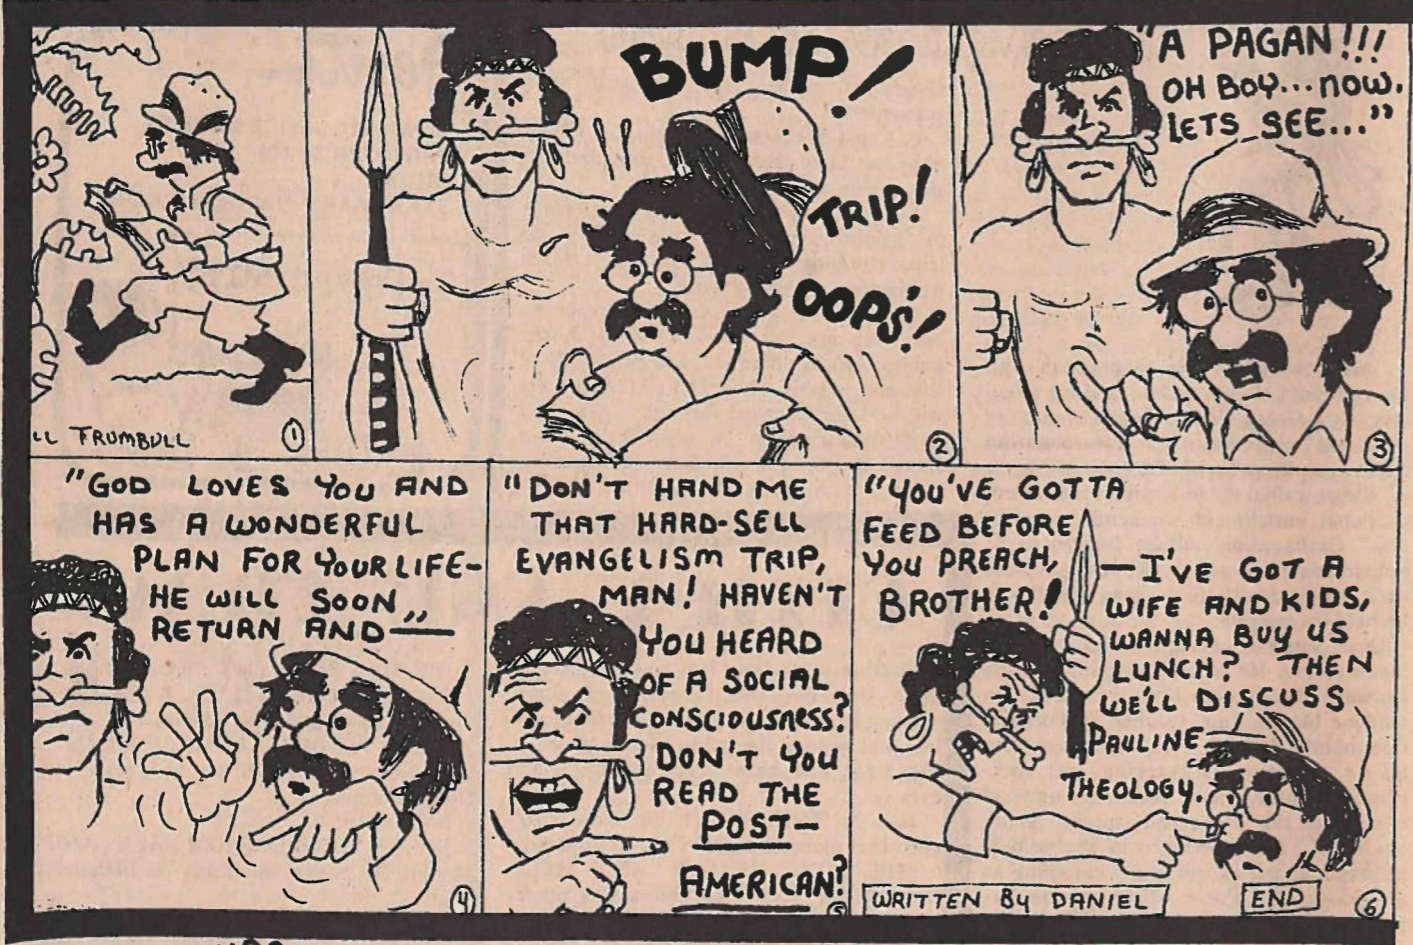 LL TRUMBULL
1
BUMP!
TRIP!
OOPS!
2
"A PAGAN!!!
OH BOY...NOW.
LETS SEE..."
3
"GOD LOVES YOU AND
HAS A WONDERFUL
PLAN FOR YOUR LIFE-
HE WILL SOON
RETURN AND—"
4
"DON'T HAND ME
THAT HARD-SELL
EVANGELISM TRIP,
MAN! HAVEN'T
YOU HEARD
OF A SOCIAL
CONSCIOUSNESS?
DON'T YOU
READ THE
POST-
AMERICAN?
5
"YOU'VE GOTTA
FEED BEFORE
YOU PREACH,
BROTHER!
—I'VE GOT A
WIFE AND KIDS,
WANNA BUY US
LUNCH? THEN
WE'LL DISCUSS
PAULINE
THEOLOGY.
WRITTEN BY DANIEL
END
6